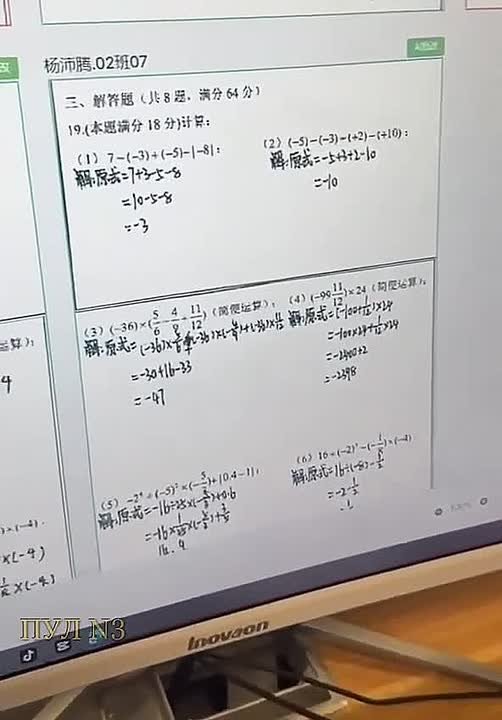 杨沛腾.02班07
三、解答题（共8题，满分64分）
19.(本题满分18分)计算：
（1）7－(－3)＋(－5)－|－8|；
解:原式=7+3-5-8
=10-5-8
=-3
（2）(－5)－(－3)－(＋2)－(＋10)；
解:原式=-5+3+2-10
=-10
（3）(－36)×(5/6－4/9＋11/12)（简便运算）；
=-30+16-33
=-47
（4）(－99 11/12)×24（简便运算）；
解:原式=(-100+1/12)×24
=-100×24+1/12×24
=-2400+2
=-2398
（5）－2⁴÷(－5)²×(－5/3)＋|0.4－1|；
解:原式=-16÷25×(-5/3)+0.6
=-16×1/25×(-5/3)+3/5
（6）16÷(－2)³－(－1/8)×(－4)
解:原式=16÷(-8)-1/2
=-2-1/2
×(-4)
ПУЛ N3
Inovaon